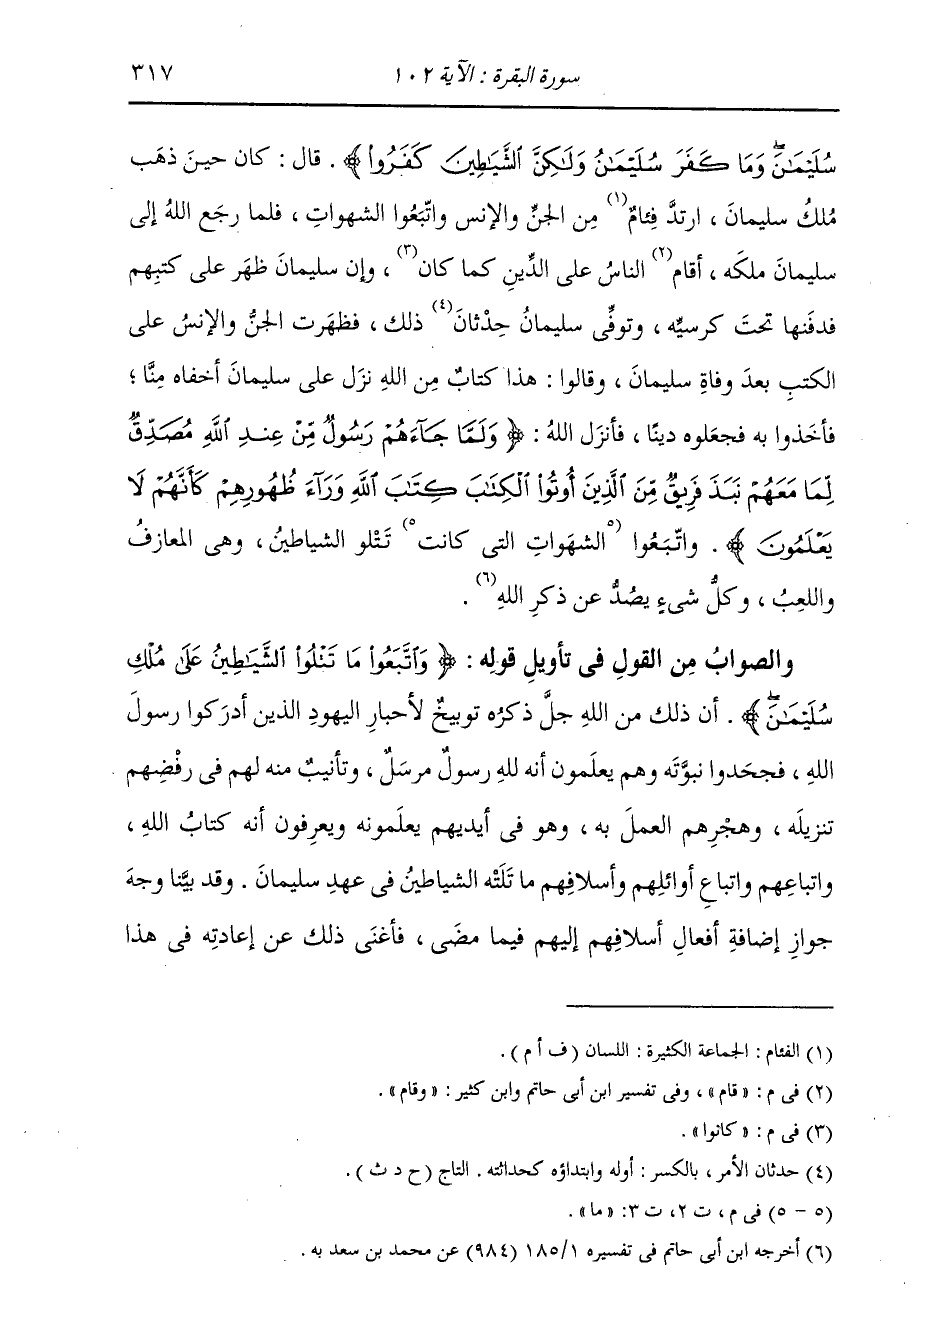 سورة البقرة : الآية ١٠٢ ٣١٧
سُلَيْمَٰنَۖ وَمَا كَفَرَ سُلَيْمَٰنُ وَلَٰكِنَّ ٱلشَّيَٰطِينَ كَفَرُوا۟ ﴾ . قال : كان حينَ ذهَب
مُلكُ سليمانَ ، ارتدَّ فِئامٌ(١) مِن الجنِّ والإنس واتَّبَعُوا الشهواتِ ، فلما رجَع اللهُ إلى
سليمانَ ملكَه ، أقام(٢) الناسُ على الدِّينِ كما كان(٣) ، وإن سليمانَ ظهَر على كتبِهم
فدفَنها تحتَ كرسيِّه ، وتوفِّى سليمانُ حِدْثانَ(٤) ذلك ، فظهَرت الجنُّ والإنسُ على
الكتبِ بعدَ وفاةِ سليمانَ ، وقالوا : هذا كتابٌ مِن اللهِ نزَل على سليمانَ أخفاه مِنَّا ؛
فأخَذوا به فجعَلوه دينًا ، فأنزَل اللهُ : ﴿ وَلَمَّا جَآءَهُمْ رَسُولٌ مِّنْ عِندِ ٱللَّهِ مُصَدِّقٌ
لِّمَا مَعَهُمْ نَبَذَ فَرِيقٌ مِّنَ ٱلَّذِينَ أُوتُوا۟ ٱلْكِتَٰبَ كِتَٰبَ ٱللَّهِ وَرَآءَ ظُهُورِهِمْ كَأَنَّهُمْ لَا
يَعْلَمُونَ ﴾ . واتَّبَعُوا (٥الشهَواتِ التى كانت٥) تَتْلو الشياطينُ ، وهى المعازفُ
واللعِبُ ، وكلُّ شىءٍ يصُدُّ عن ذكرِ اللهِ(٦) .
والصوابُ مِن القولِ فى تأويلِ قولِه : ﴿ وَٱتَّبَعُوا۟ مَا تَتْلُوا۟ ٱلشَّيَٰطِينُ عَلَىٰ مُلْكِ
سُلَيْمَٰنَۖ ﴾ . أن ذلك من اللهِ جلَّ ذكرُه توبيخٌ لأحبارِ اليهودِ الذين أدرَكوا رسولَ
اللهِ ، فجحَدوا نبوَّتَه وهم يعلَمون أنه للهِ رسولٌ مرسَلٌ ، وتأنيبٌ منه لهم فى رفْضِهم
تنزيلَه ، وهجْرِهم العملَ به ، وهو فى أيديهم يعلَمونه ويعرِفون أنه كتابُ اللهِ ،
واتباعِهم واتباعِ أوائلِهم وأسلافِهم ما تَلَتْه الشياطينُ فى عهدِ سليمانَ . وقد بيَّنا وجهَ
جوازِ إضافةِ أفعالِ أسلافِهم إليهم فيما مضَى ، فأغنَى ذلك عن إعادتِه فى هذا
(١) الفئام : الجماعة الكثيرة : اللسان (ف أ م) .
(٢) فى م : « قام » ، وفى تفسير ابن أبى حاتم وابن كثير : « وقام » .
(٣) فى م : « كانوا » .
(٤) حدثان الأمر ، بالكسر : أوله وابتداؤه كحداثته . التاج (ح د ث) .
(٥ - ٥) فى م ، ت ٢، ت ٣: « ما » .
(٦) أخرجه ابن أبى حاتم فى تفسيره ١٨٥/١ (٩٨٤) عن محمد بن سعد به .